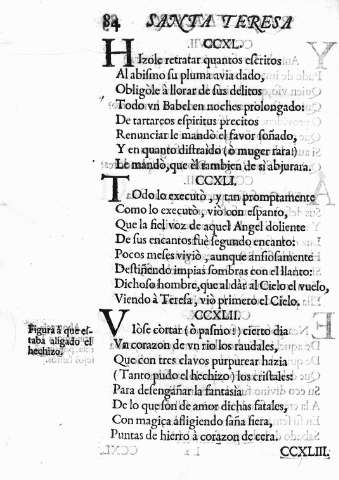 84 SANTA TERESA
CCXL.
HIzole retratar quantos escritos
Al abismo su pluma avia dado,
Obligòle à llorar de sus delitos
Todo vn Babel en noches prolongado:
De tartareos espiritus precitos
Renunciar le mandò el favor soñado,
Y en quanto distraìdo (ò muger rara!)
Le mandò, que èl tambien de si abjurara.
CCXLI.
TOdo lo executò, y tan promptamente
Como lo executò, viò con espanto,
Que la fiel voz de aquel Angel doliente
De sus encantos fuè segundo encanto:
Pocos meses viviò, aunque ansiosamente
Destiñendo impias sombras con el llanto:
Dichoso hombre, que al dàr al Cielo el vuelo,
Viendo à Teresa, viò primero el Cielo.
CCXLII.
VIose cortar (ò pasmo!) cierto dia
Vn corazon de vn rio los raudales,
Que con tres clavos purpurear hazia
(Tanto pudo el hechizo) los cristales:
Para desengañar la fantasìa
De lo que son de amor dichas fatales,
Con magica afligiendo saña fiera,
Puntas de hierro à corazon de cera.
Figura à que es-
taba aligado el
hechizo.
CCXLIII.